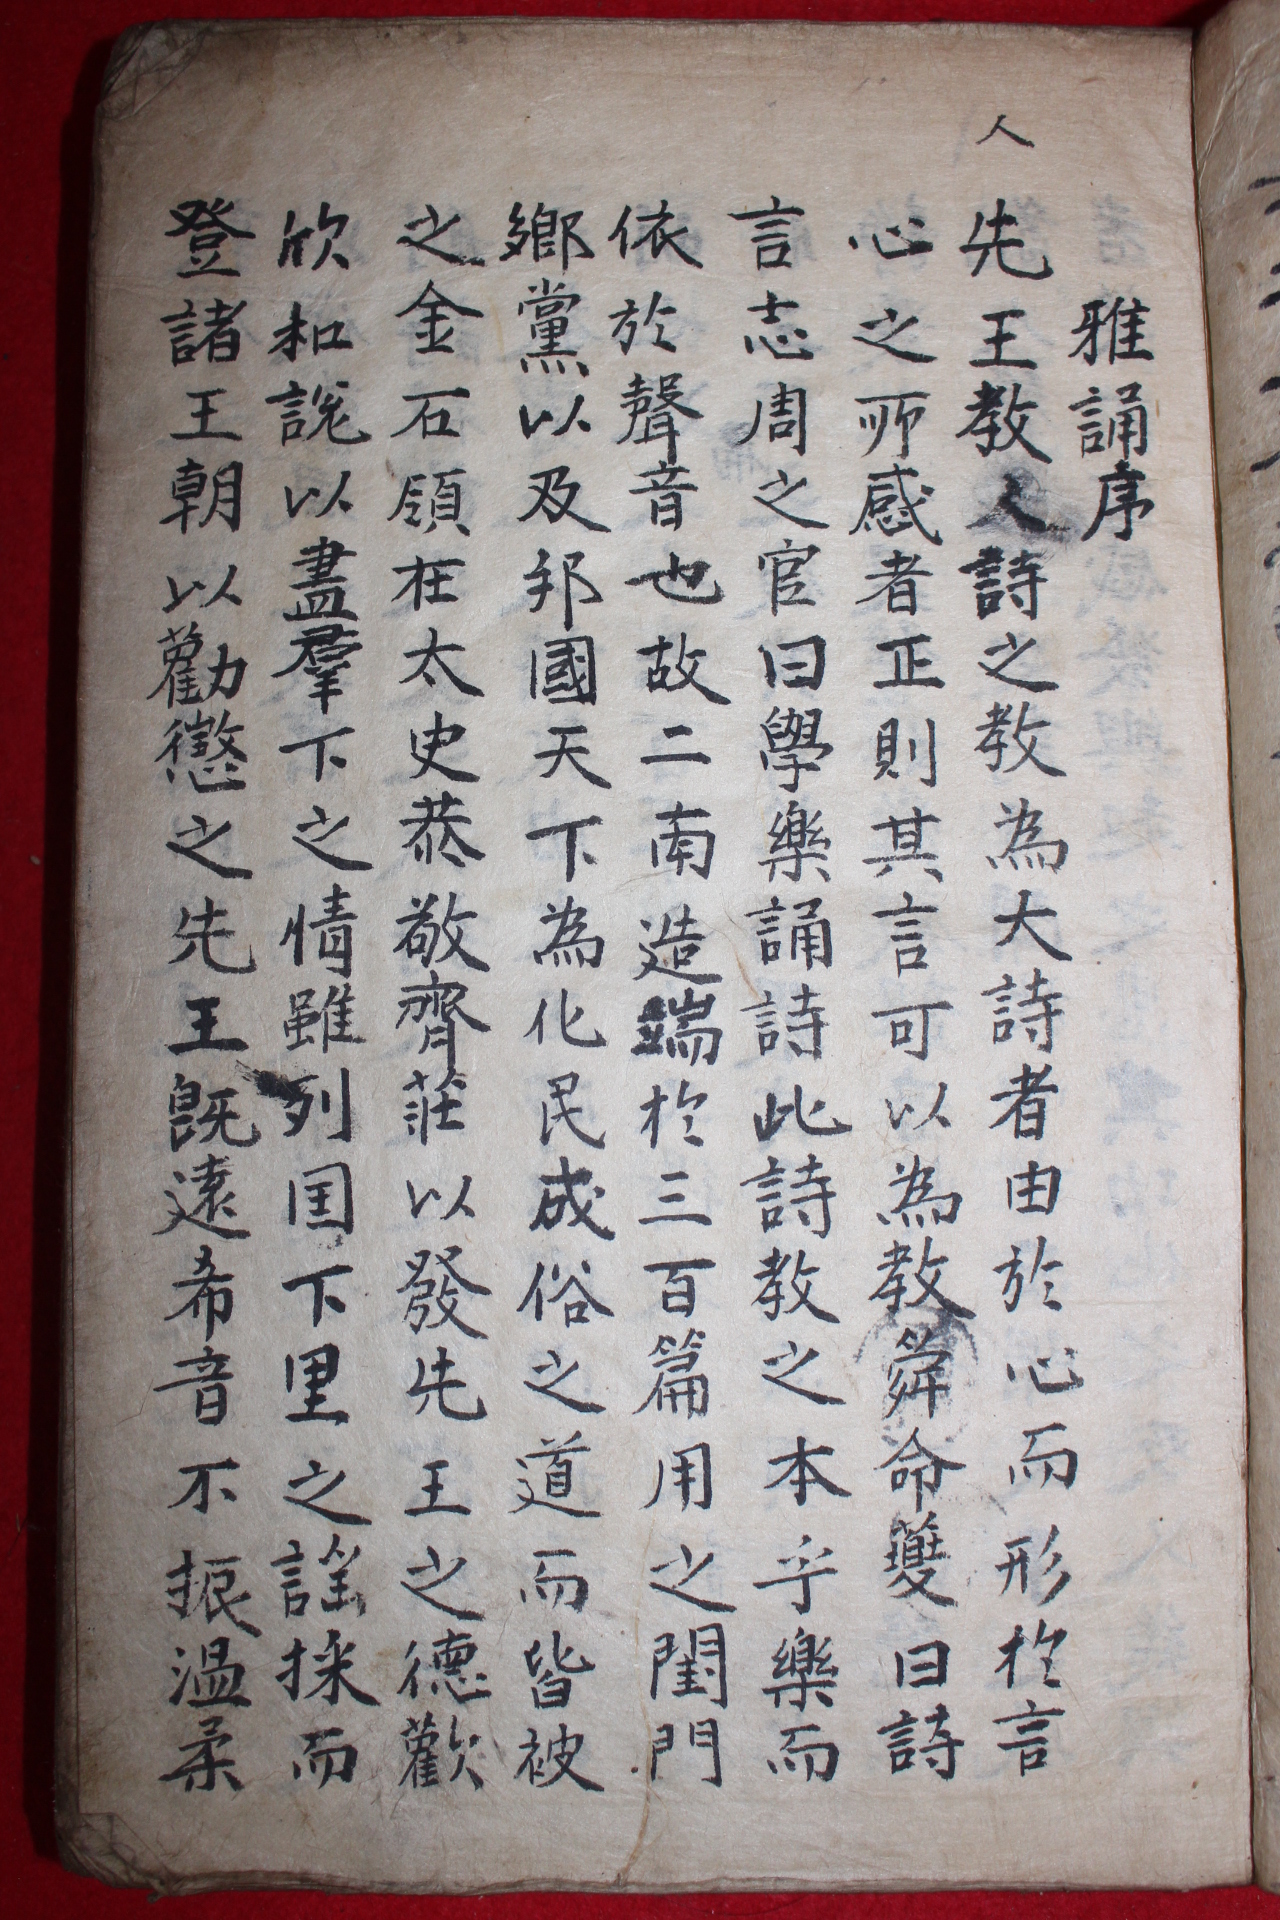 雅誦序
人
先王教人詩之教為大詩者由於心而形於言
心之所感者正則其言可以為教舜命夔曰詩
言志周之官曰學樂誦詩此詩教之本乎樂而
依於聲音也故二南造端於三百篇用之閨門
鄉黨以及邦國天下為化民成俗之道而皆被
之金石領在太史恭敬齊莊以發先王之德歡
欣和說以盡羣下之情雖列国下里之謠採而
登諸王朝以勸懲之先王旣遠希音不振溫柔